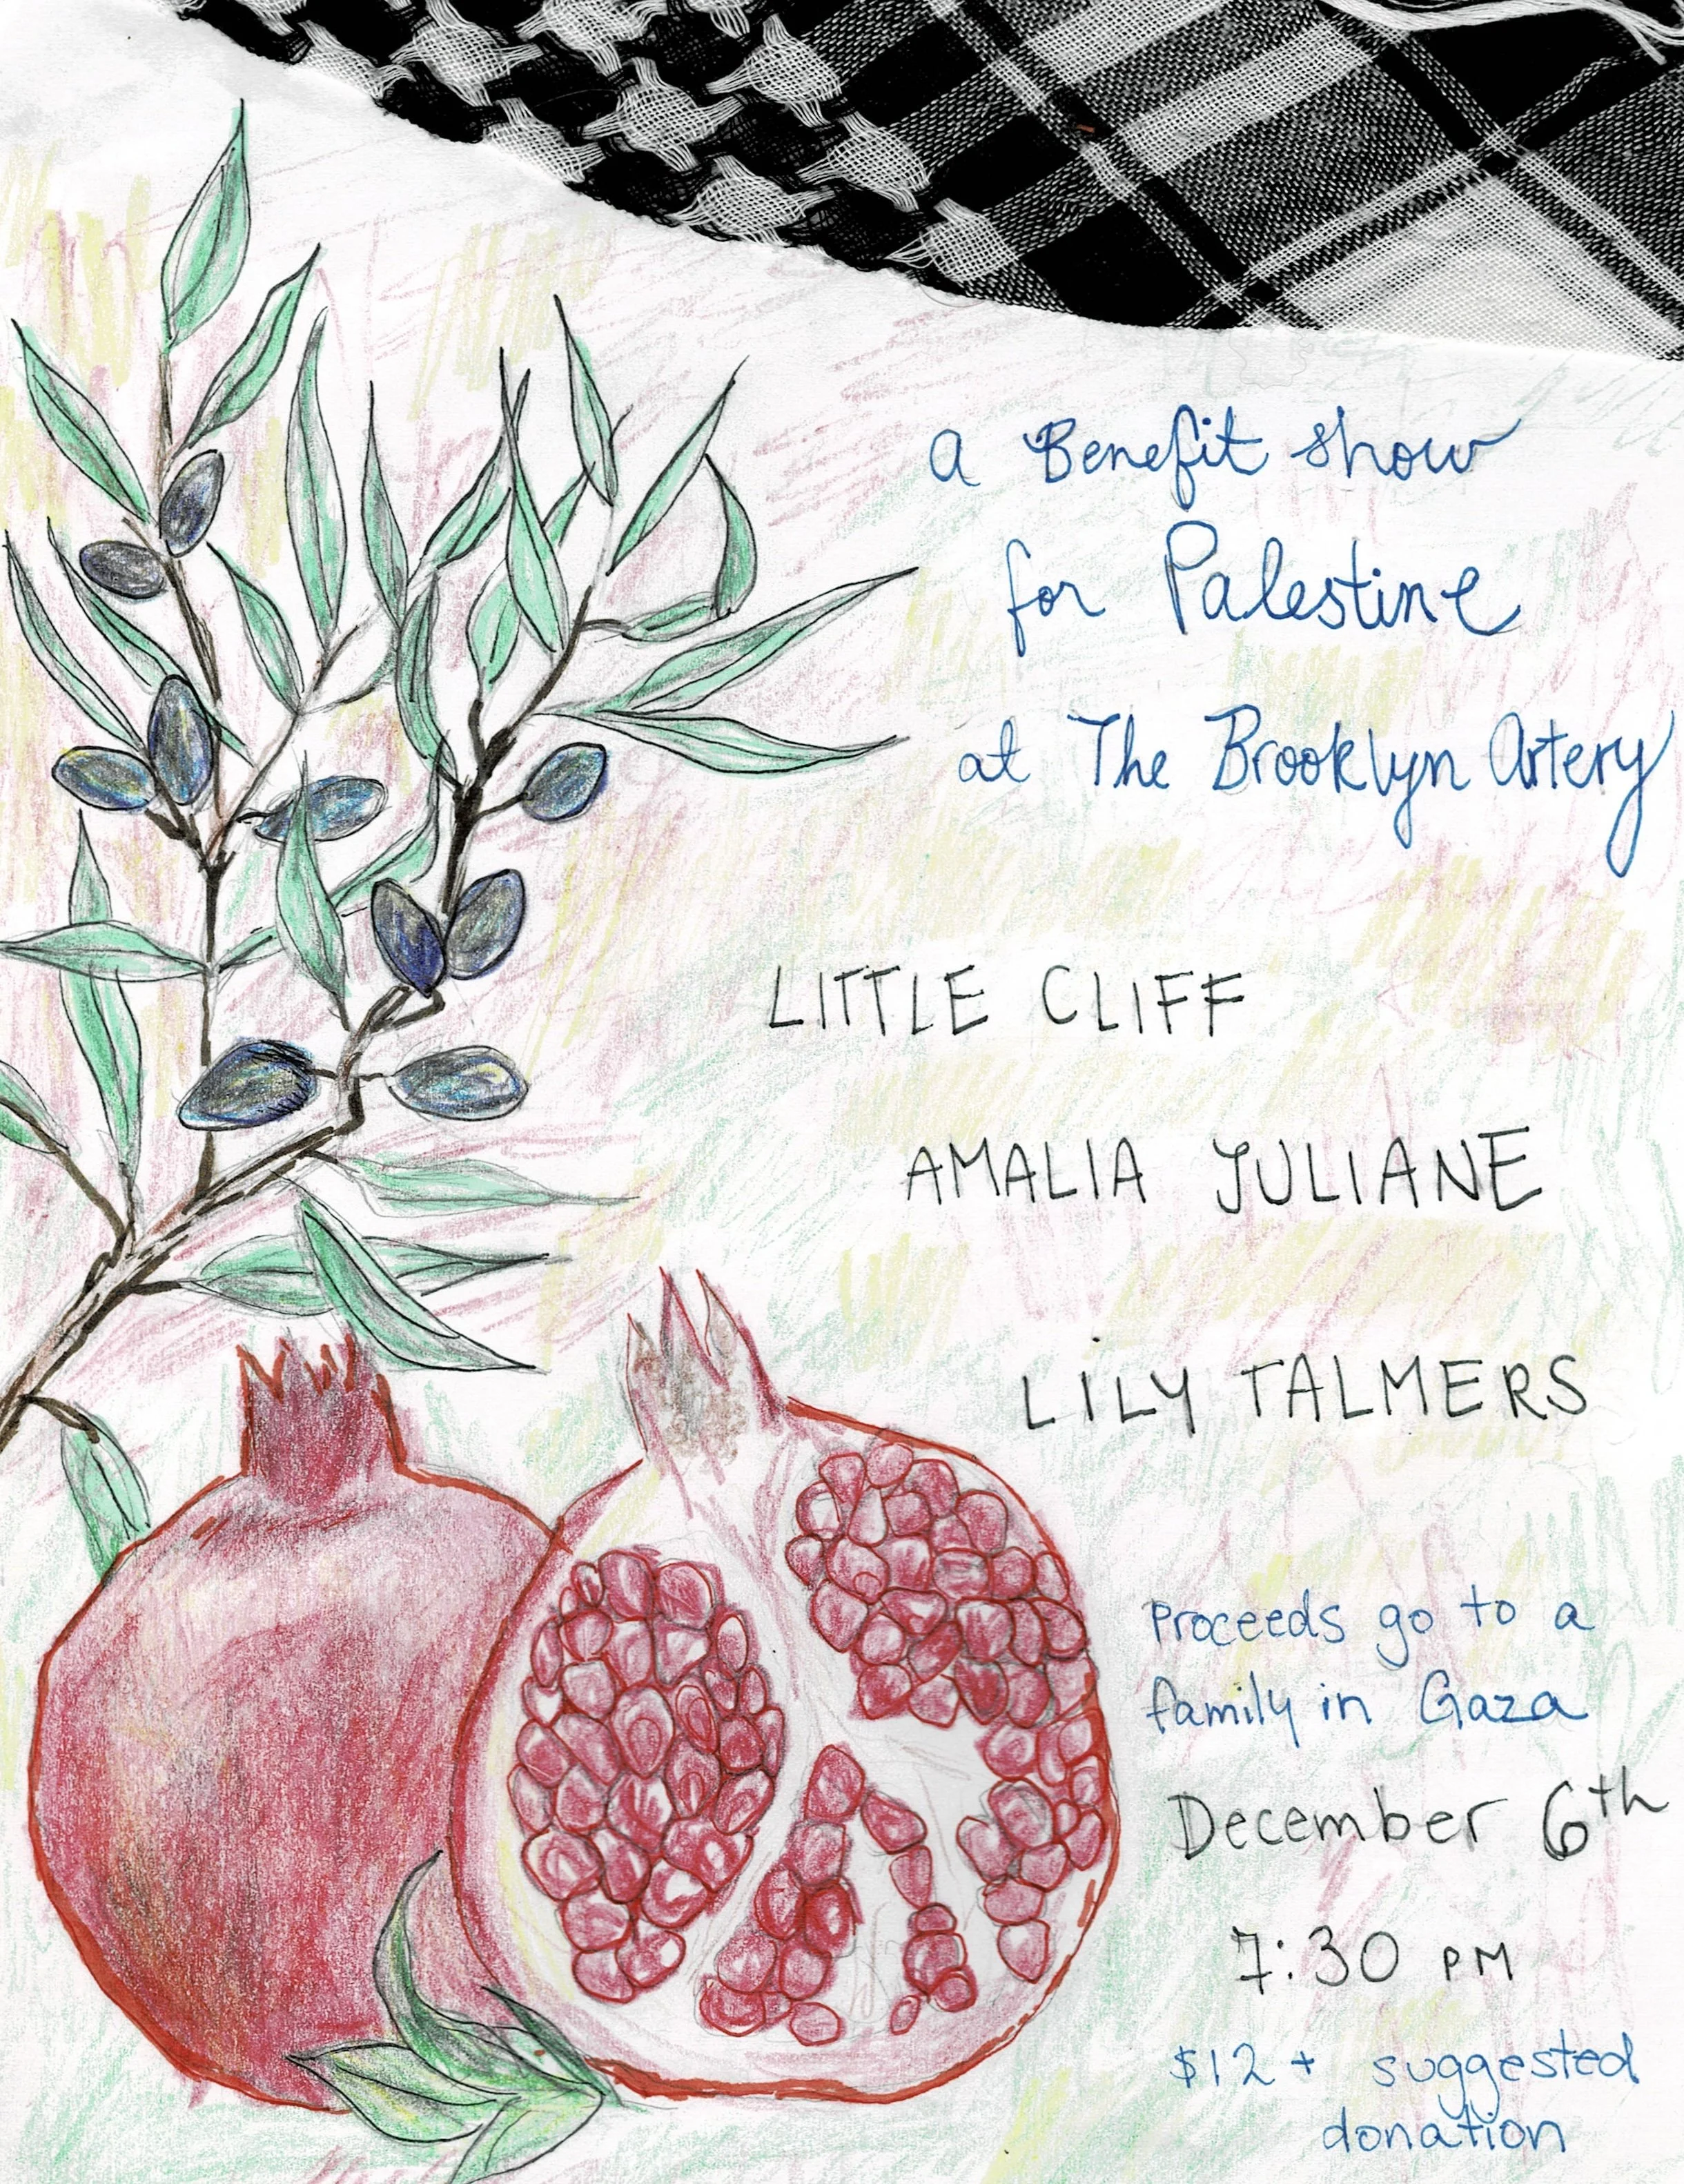 a Benefit show
for Palestine
at The Brooklyn Artery
LITTLE CLIFF
AMALIA JULIANE
LILY TALMERS
Proceeds go to a
family in Gaza
December 6th
7:30 PM
$12 + suggested
donation